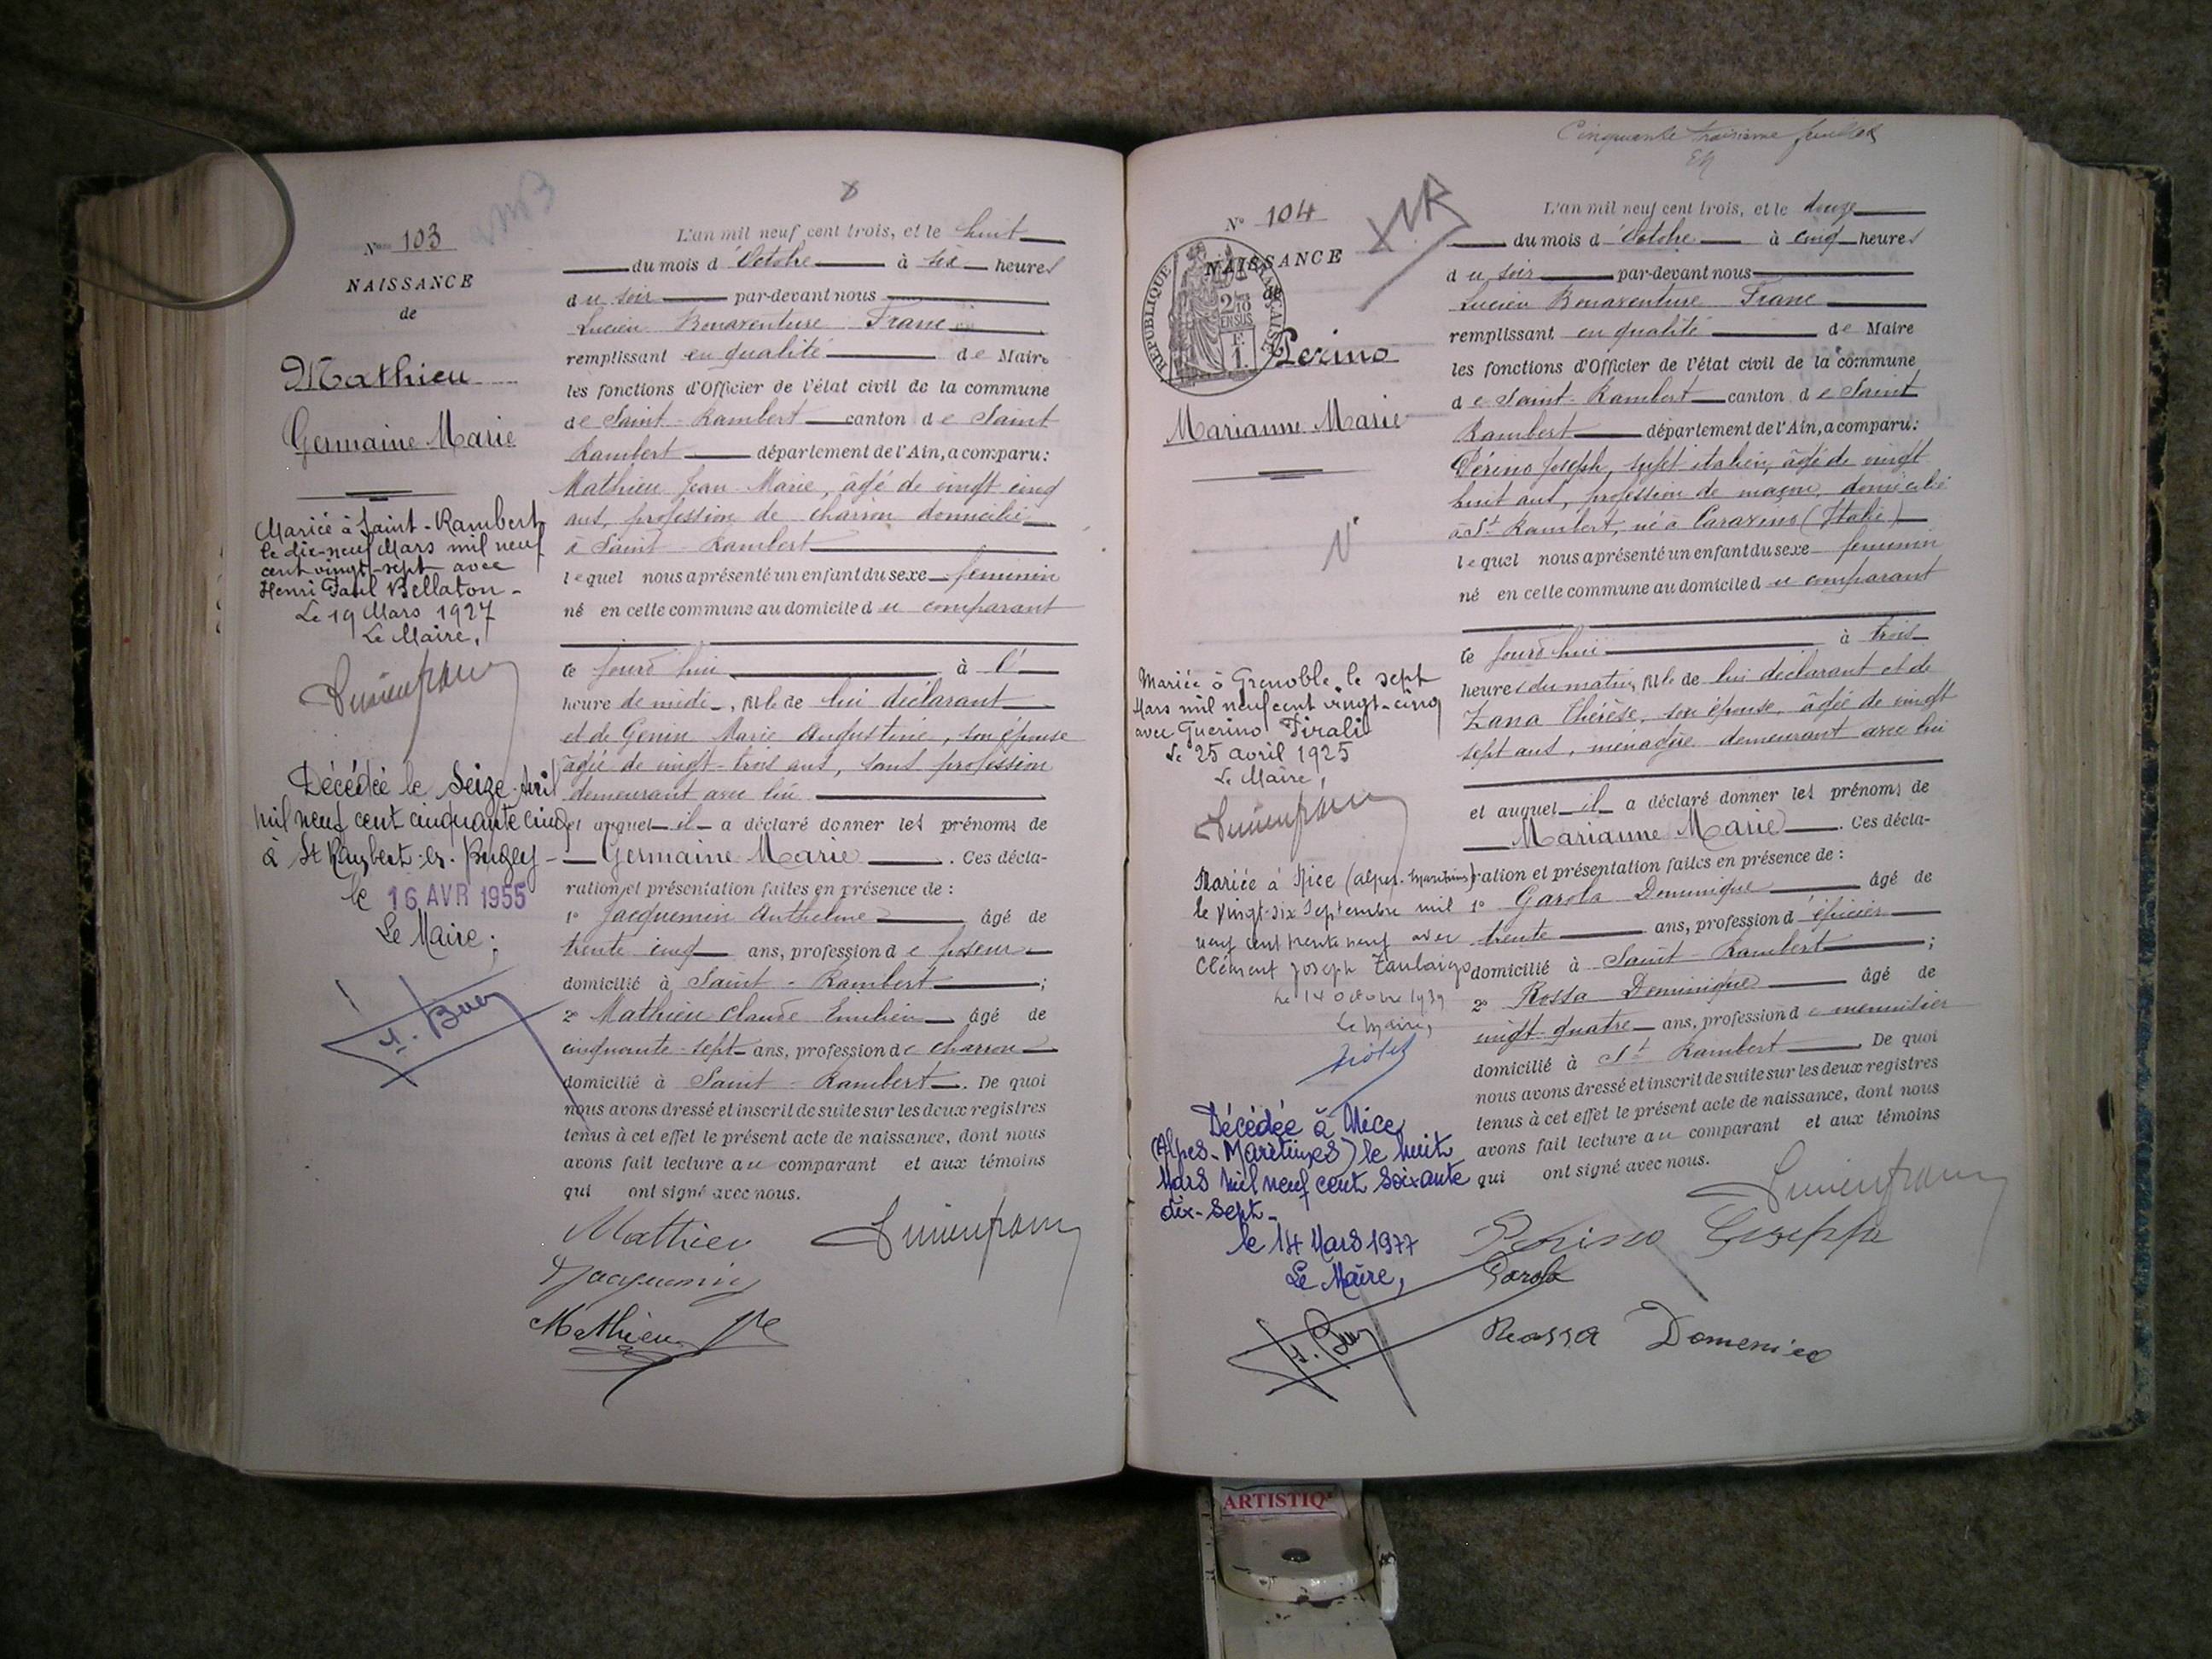 N° 103
NAISSANCE
de
Mathieu
Germaine Marie
Mariée à Saint-Rambert
le dix-neuf Mars mil neuf
cent vingt-sept avec
Henri Paul Bellaton -
Le 19 Mars 1927
Le Maire,
Décédée le Seize Avril
mil neuf cent cinquante cinq
à St Rambert-en-Bugey -
le 16 AVR 1955
Le Maire,
L'an mil neuf cent trois, et le huit
du mois d'Octobre à six heures
du soir par-devant nous
Lucien Bonaventure Franc
remplissant en qualité de Maire
les fonctions d'Officier de l'état civil de la commune
de Saint-Rambert canton de Saint
Rambert département de l'Ain, a comparu:
Mathieu Jean Marie, âgé de vingt cinq
ans, profession de charron domicilié
à Saint-Rambert
lequel nous a présenté un enfant du sexe féminin
né en cette commune au domicile du comparant
ce jourd'hui à l'
heure de midi, de lui déclarant
et de Genin Marie Augustine, son épouse
âgée de vingt-trois ans, sans profession
demeurant avec lui
et auquel il a déclaré donner les prénoms de
Germaine Marie. Ces décla-
ration et présentation faites en présence de :
1° Jacquemin Anthelme âgé de
trente cinq ans, profession de poseur
domicilié à Saint-Rambert ;
2° Mathieu Claude Emilien âgé de
cinquante-sept ans, profession de charron
domicilié à Saint-Rambert. De quoi
nous avons dressé et inscrit de suite sur les deux registres
tenus à cet effet le présent acte de naissance, dont nous
avons fait lecture au comparant et aux témoins
qui ont signé avec nous.
Mathieu
Jacquemin
Mathieu
Cinquante troisième feuillet
N° 104
NAISSANCE
de
RÉPUBLIQUE FRANÇAISE
2/10
EN SUS
F.
1.
Perino
Marianne Marie
Mariée à Grenoble, le sept
Mars mil neuf cent vingt-cinq
avec Guerino Tirali
Le 25 avril 1925
Le Maire,
Mariée à Nice (Alpes-Maritimes)
le vingt-six Septembre mil
neuf cent trente neuf avec
Clément Joseph
Le 14 octobre 1939
Le Maire,
Décédée à Nice
(Alpes-Maritimes) le huit
Mars mil neuf cent soixante
dix-sept -
le 14 Mars 1977
Le Maire,
L'an mil neuf cent trois, et le douze
du mois d'Octobre à cinq heures
du soir par-devant nous
Lucien Bonaventure Franc
remplissant en qualité de Maire
les fonctions d'Officier de l'état civil de la commune
de Saint-Rambert canton de Saint
Rambert département de l'Ain, a comparu:
Périno Joseph, sujet italien, âgé de vingt
huit ans, profession de maçon, domicilié
à St Rambert, né à Caravino (Italie)
lequel nous a présenté un enfant du sexe féminin
né en cette commune au domicile du comparant
ce jourd'hui à trois
heures du matin, de lui déclarant et de
Zana Thérèse, son épouse, âgée de vingt
sept ans, ménagère demeurant avec lui
et auquel il a déclaré donner les prénoms de
Marianne Marie. Ces décla-
ration et présentation faites en présence de :
1° Garola Dominique âgé de
trente ans, profession d'épicier
domicilié à Saint-Rambert ;
2° Rossa Dominique âgé de
vingt-quatre ans, profession de menuisier
domicilié à St Rambert. De quoi
nous avons dressé et inscrit de suite sur les deux registres
tenus à cet effet le présent acte de naissance, dont nous
avons fait lecture au comparant et aux témoins
qui ont signé avec nous.
Perino Giuseppe
Garola
Rossa Domenico
ARTISTIQ